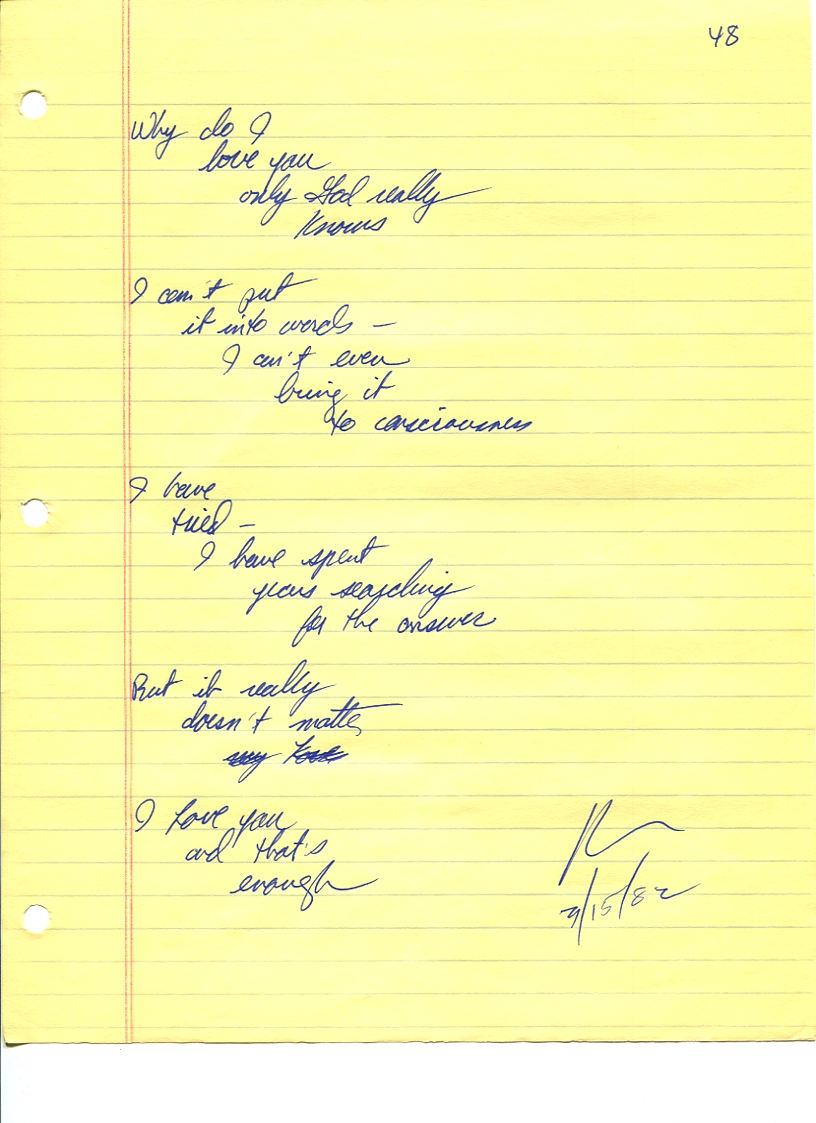 48
Why do I
love you
only God really
knows
I can't put
it into words –
I can't even
bring it
to consciousness
I have
tried –
I have spent
years searching
for the answer
But it really
doesn't matter
my love
I love you
and that's
enough
/15/82